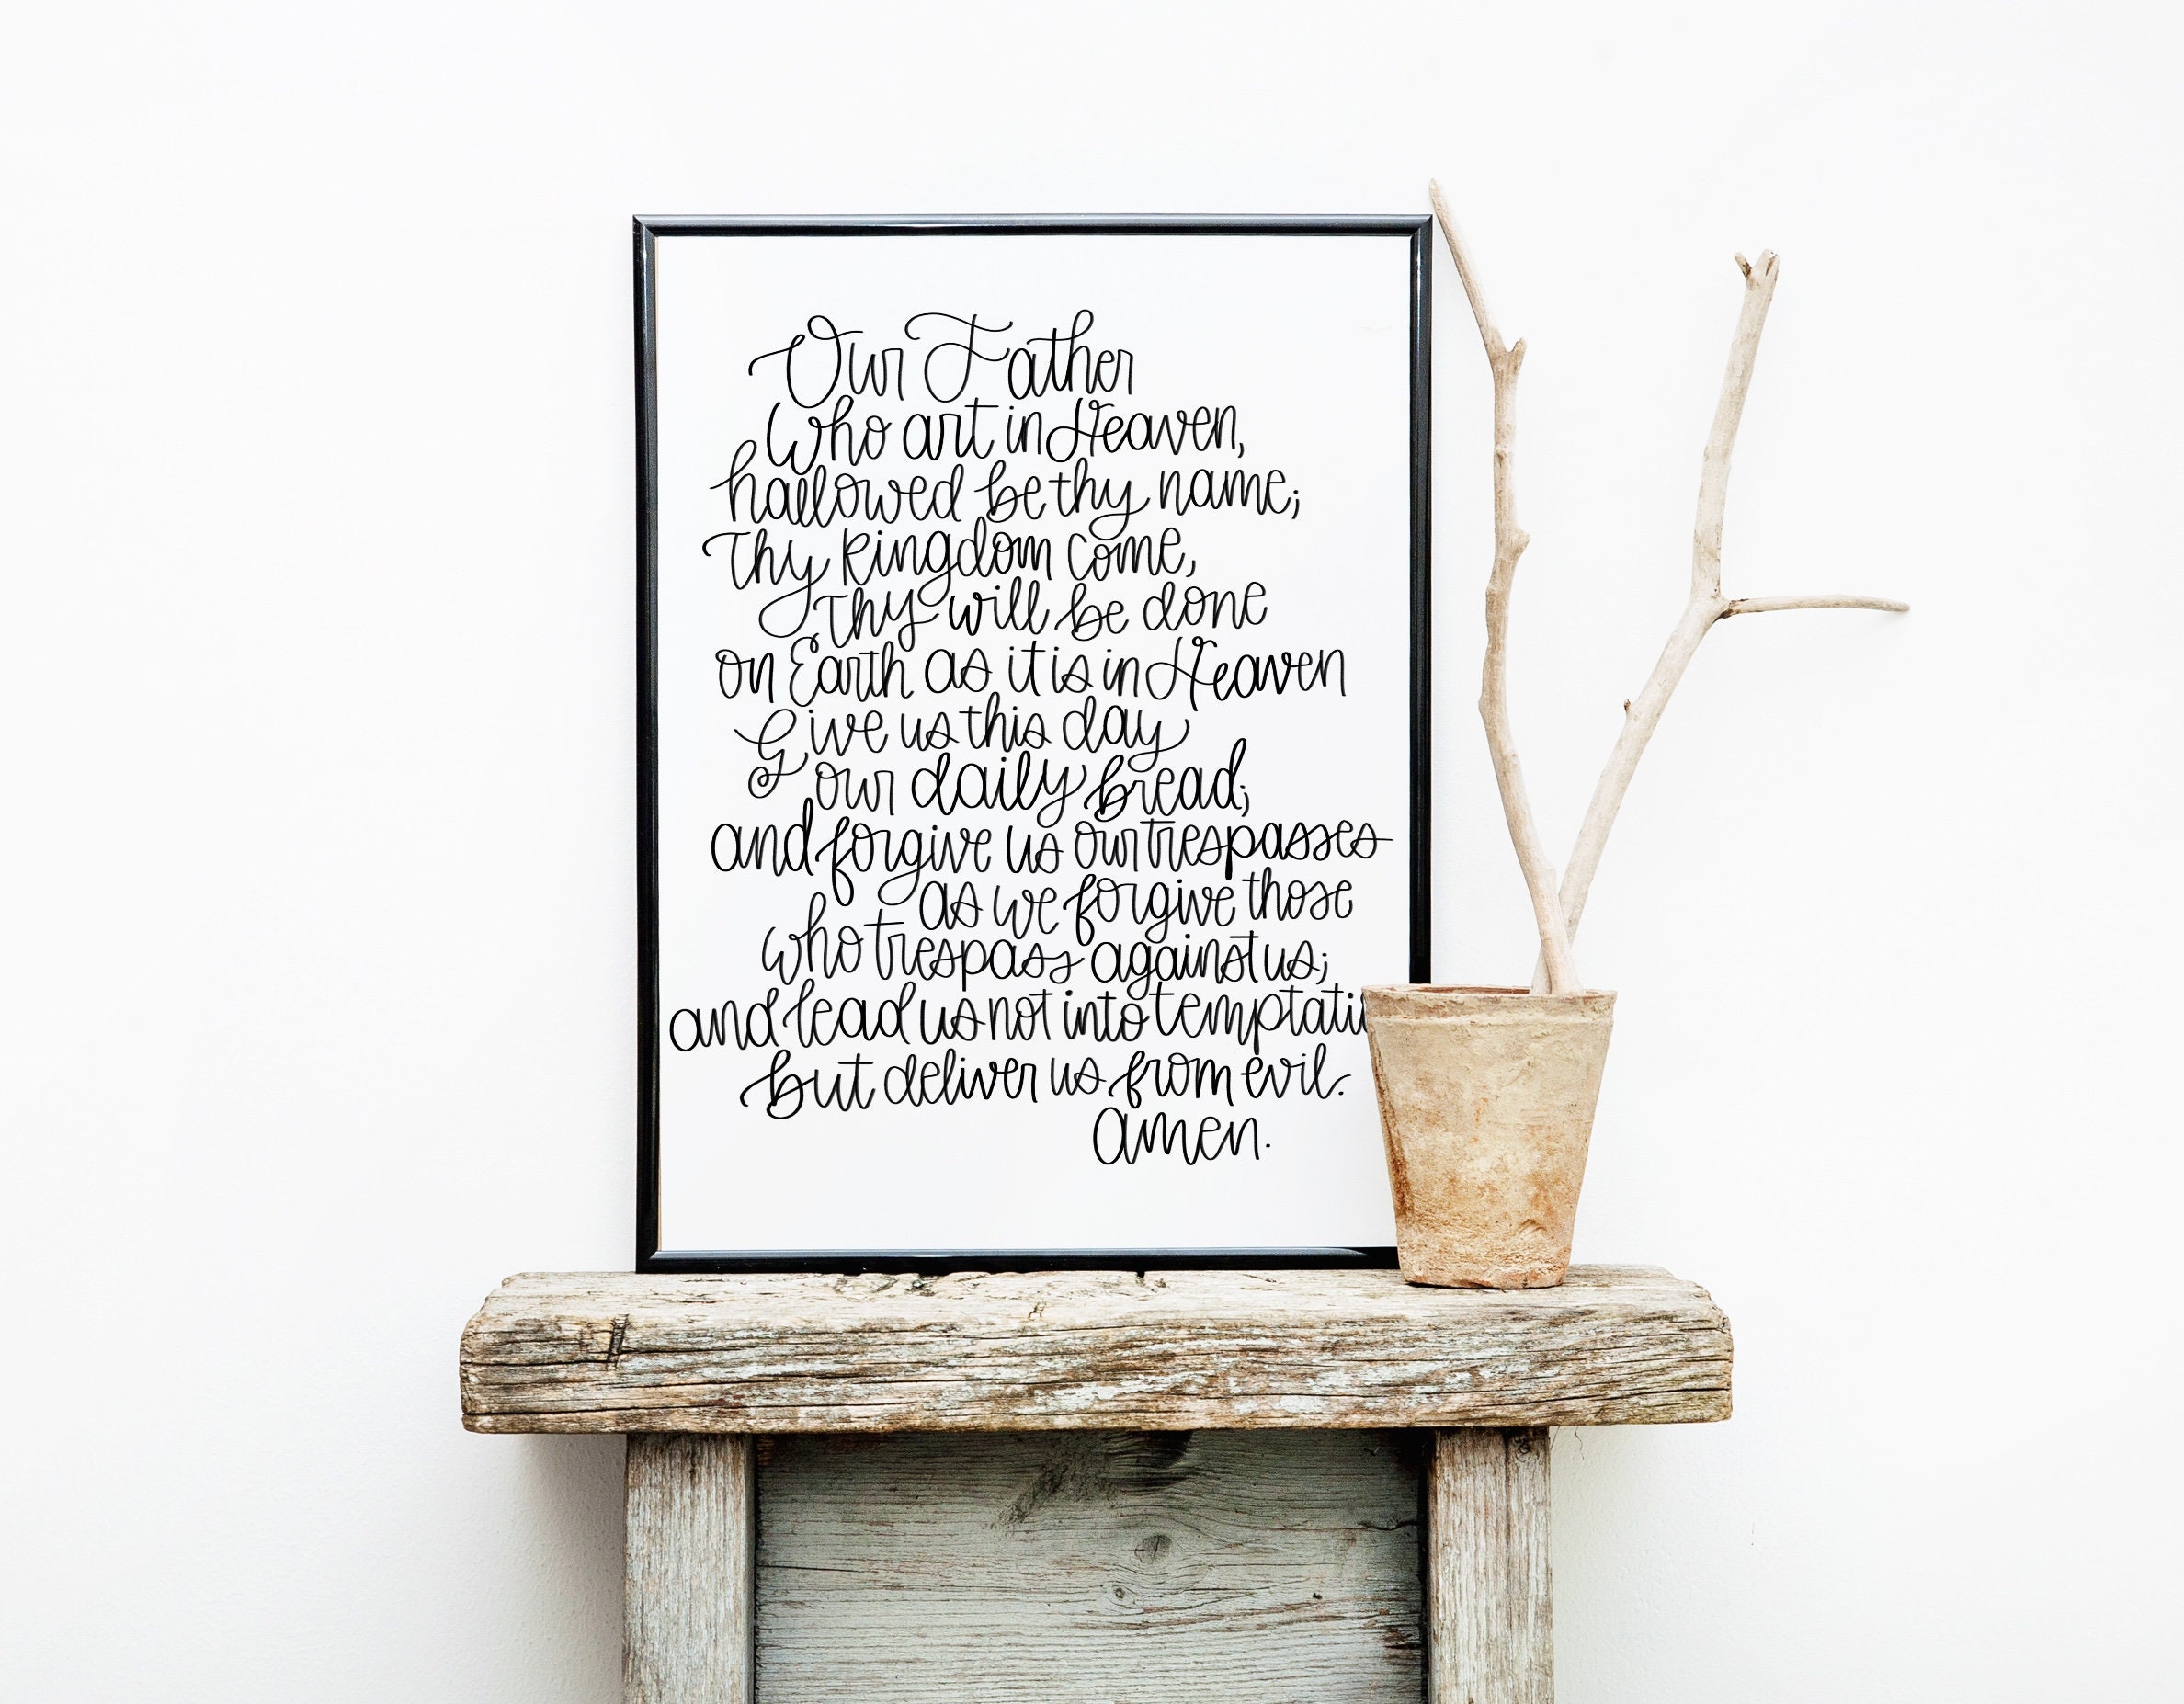 Our Father
Who art in Heaven,
hallowed be thy name;
Thy Kingdom come,
Thy will be done
on Earth as it is in Heaven
Give us this day
our daily bread;
and forgive us our trespasses
as we forgive those
who trespass against us;
and lead us not into temptati
but deliver us from evil.
Amen.